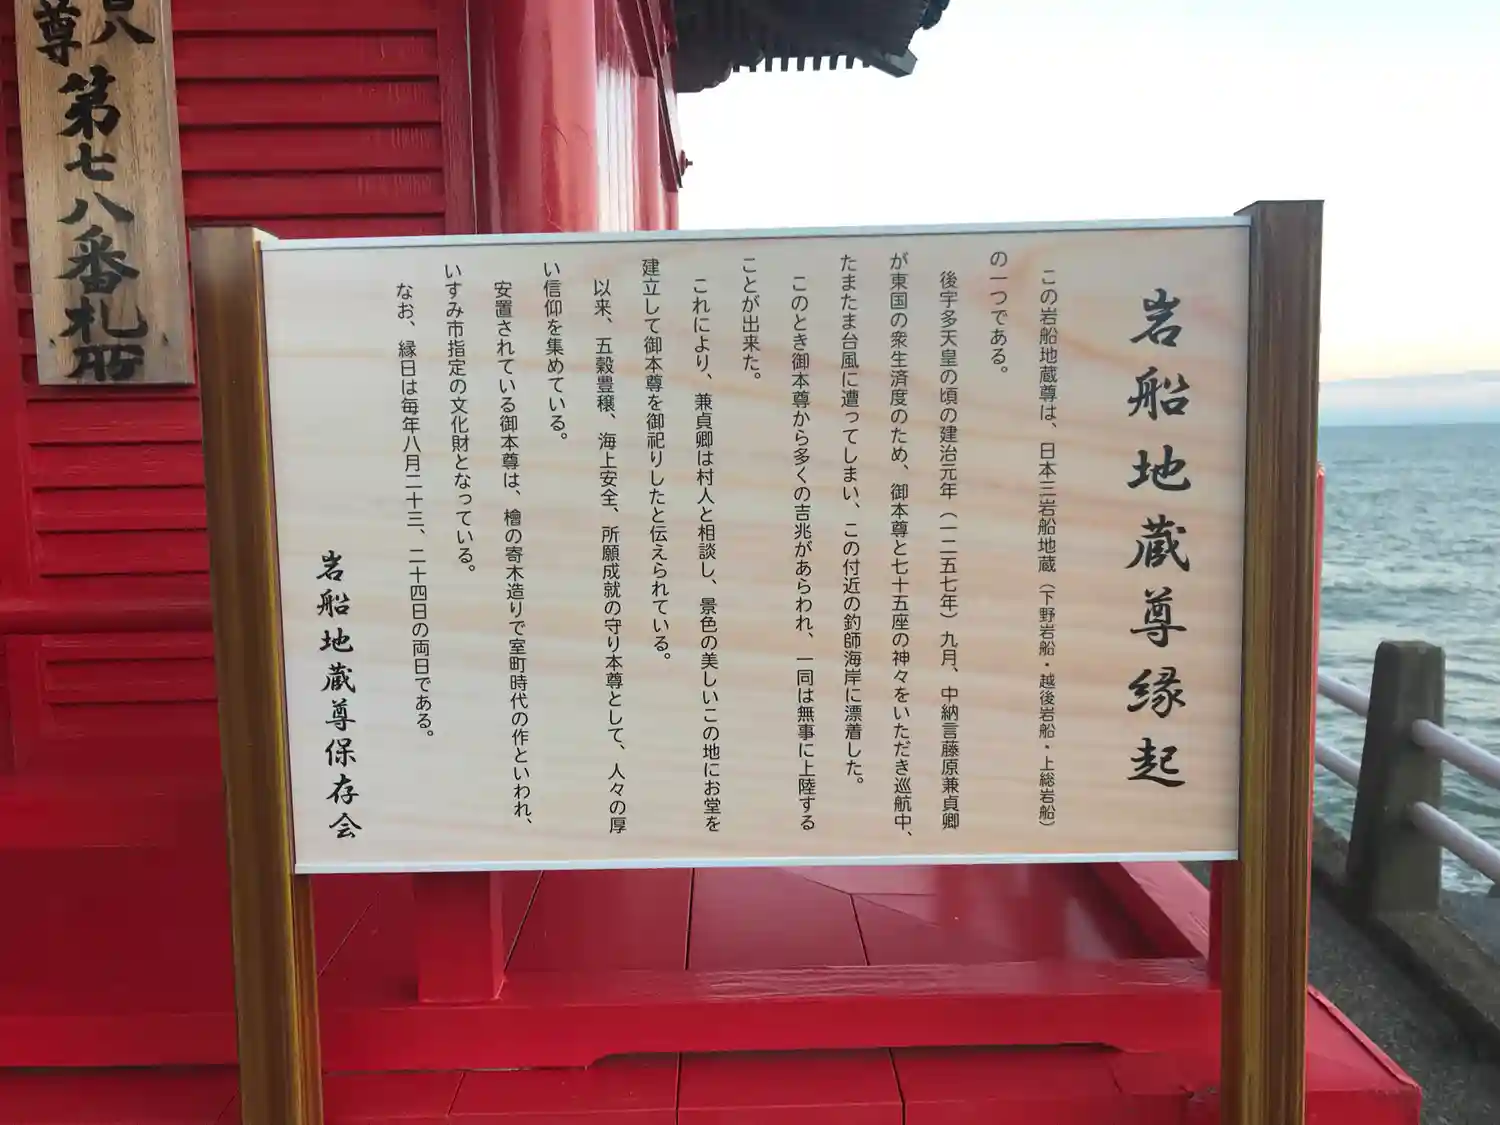 岩船地蔵尊縁起
この岩船地蔵尊は、日本三岩船地蔵（下野岩船・越後岩船・上総岩船）
の一つである。
後宇多天皇の頃の建治元年（一二五七年）九月、中納言藤原兼貞卿
が東国の衆生済度のため、御本尊と七十五座の神々をいただき巡航中、
たまたま台風に遭ってしまい、この付近の釣師海岸に漂着した。
このとき御本尊から多くの吉兆があらわれ、一同は無事に上陸する
ことが出来た。
これにより、兼貞卿は村人と相談し、景色の美しいこの地にお堂を
建立して御本尊を御祀りしたと伝えられている。
以来、五穀豊穣、海上安全、所願成就の守り本尊として、人々の厚
い信仰を集めている。
安置されている御本尊は、檜の寄木造りで室町時代の作といわれ、
いすみ市指定の文化財となっている。
なお、縁日は毎年八月二十三、二十四日の両日である。
岩船地蔵尊保存会
尊
第七八番札所